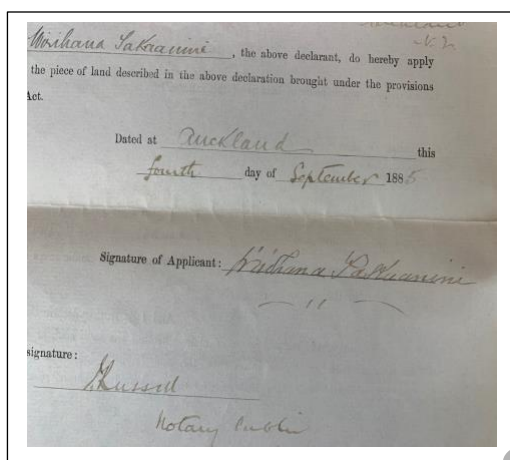 Wirihana Takaanini, the above declarant, do hereby apply
the piece of land described in the above declaration brought under the provisions
Act.
Dated at Auckland this
fourth day of September 1885
Signature of Applicant: Wirihana Takaanini
signature:
Russell
Notary Public